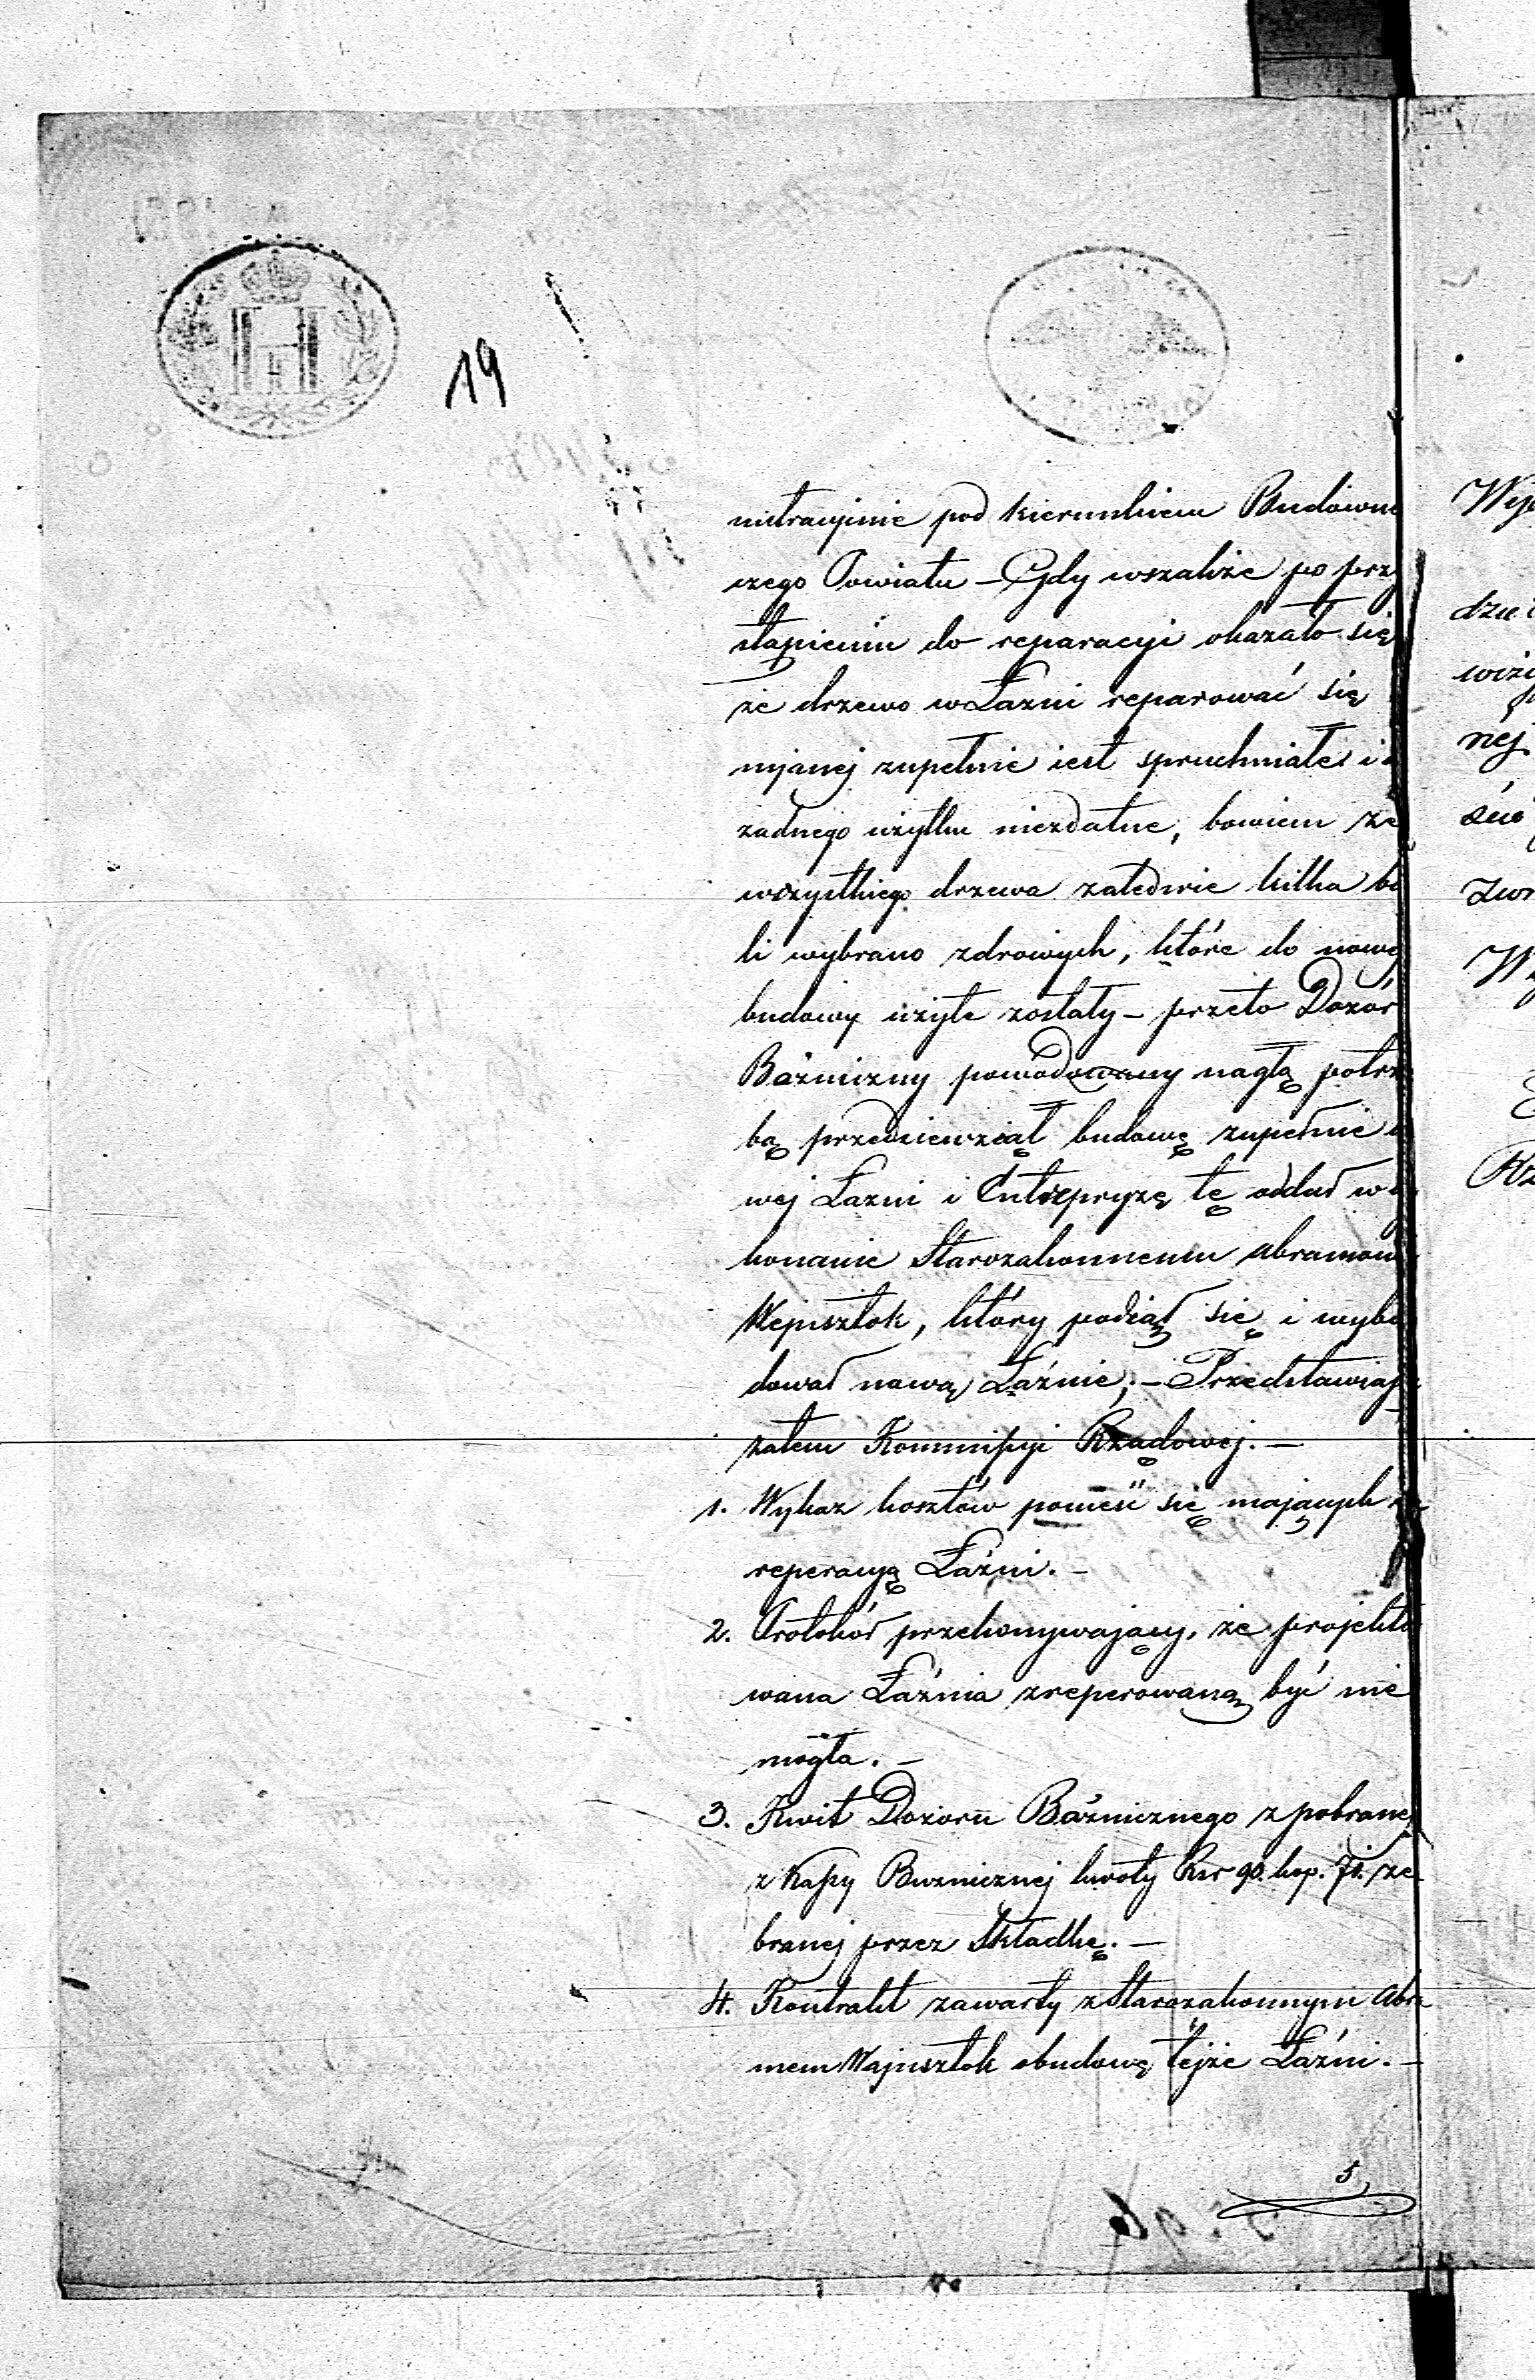 19
nistracyjnie pod kierunkiem Budowni
czego Powiatu – Gdy wszakże po przy
stąpieniu do reparacyi okazało się
że drzewo w Łazni reparować się
mjanej zupełnie iest spruchniałe i
żadnego użytku niezdatne, bowiem ze
wszystkiego drzewa zaledwie kilka ba
li wybrano zdrowych, które do nowej
budowy użyte zostały – przeto Dozór
Bóżniczny powodowany nagłą potrze
bą przedsiewziął budowę zupełnie
wej Łazni i Entrepryzę tę oddał w
konanie Starozakonnemu Abramowi
Wejnsztok, który podiął się i wybu
dował nową Łaźnie; – Przedstawiając
zatem Kommissyi Rządowej. –
1. Wykaz kosztów ponieść się mających
reperacyą Łaźni. –
2. Protokół przekonywający, że projekto
wana Łaźnia zreperowaną być nie
mogła. –
3. Kwit Dozoru Bóżnicznego z pobranej
z Kassy Buznicznej kwoty Rsr 90. kop. 71. ze
branej przez Składkę. –
4. Kontrakt zawarty z Starozakonnym Abra
mem Wajnsztok o budowę tejże Łaźni. –
5